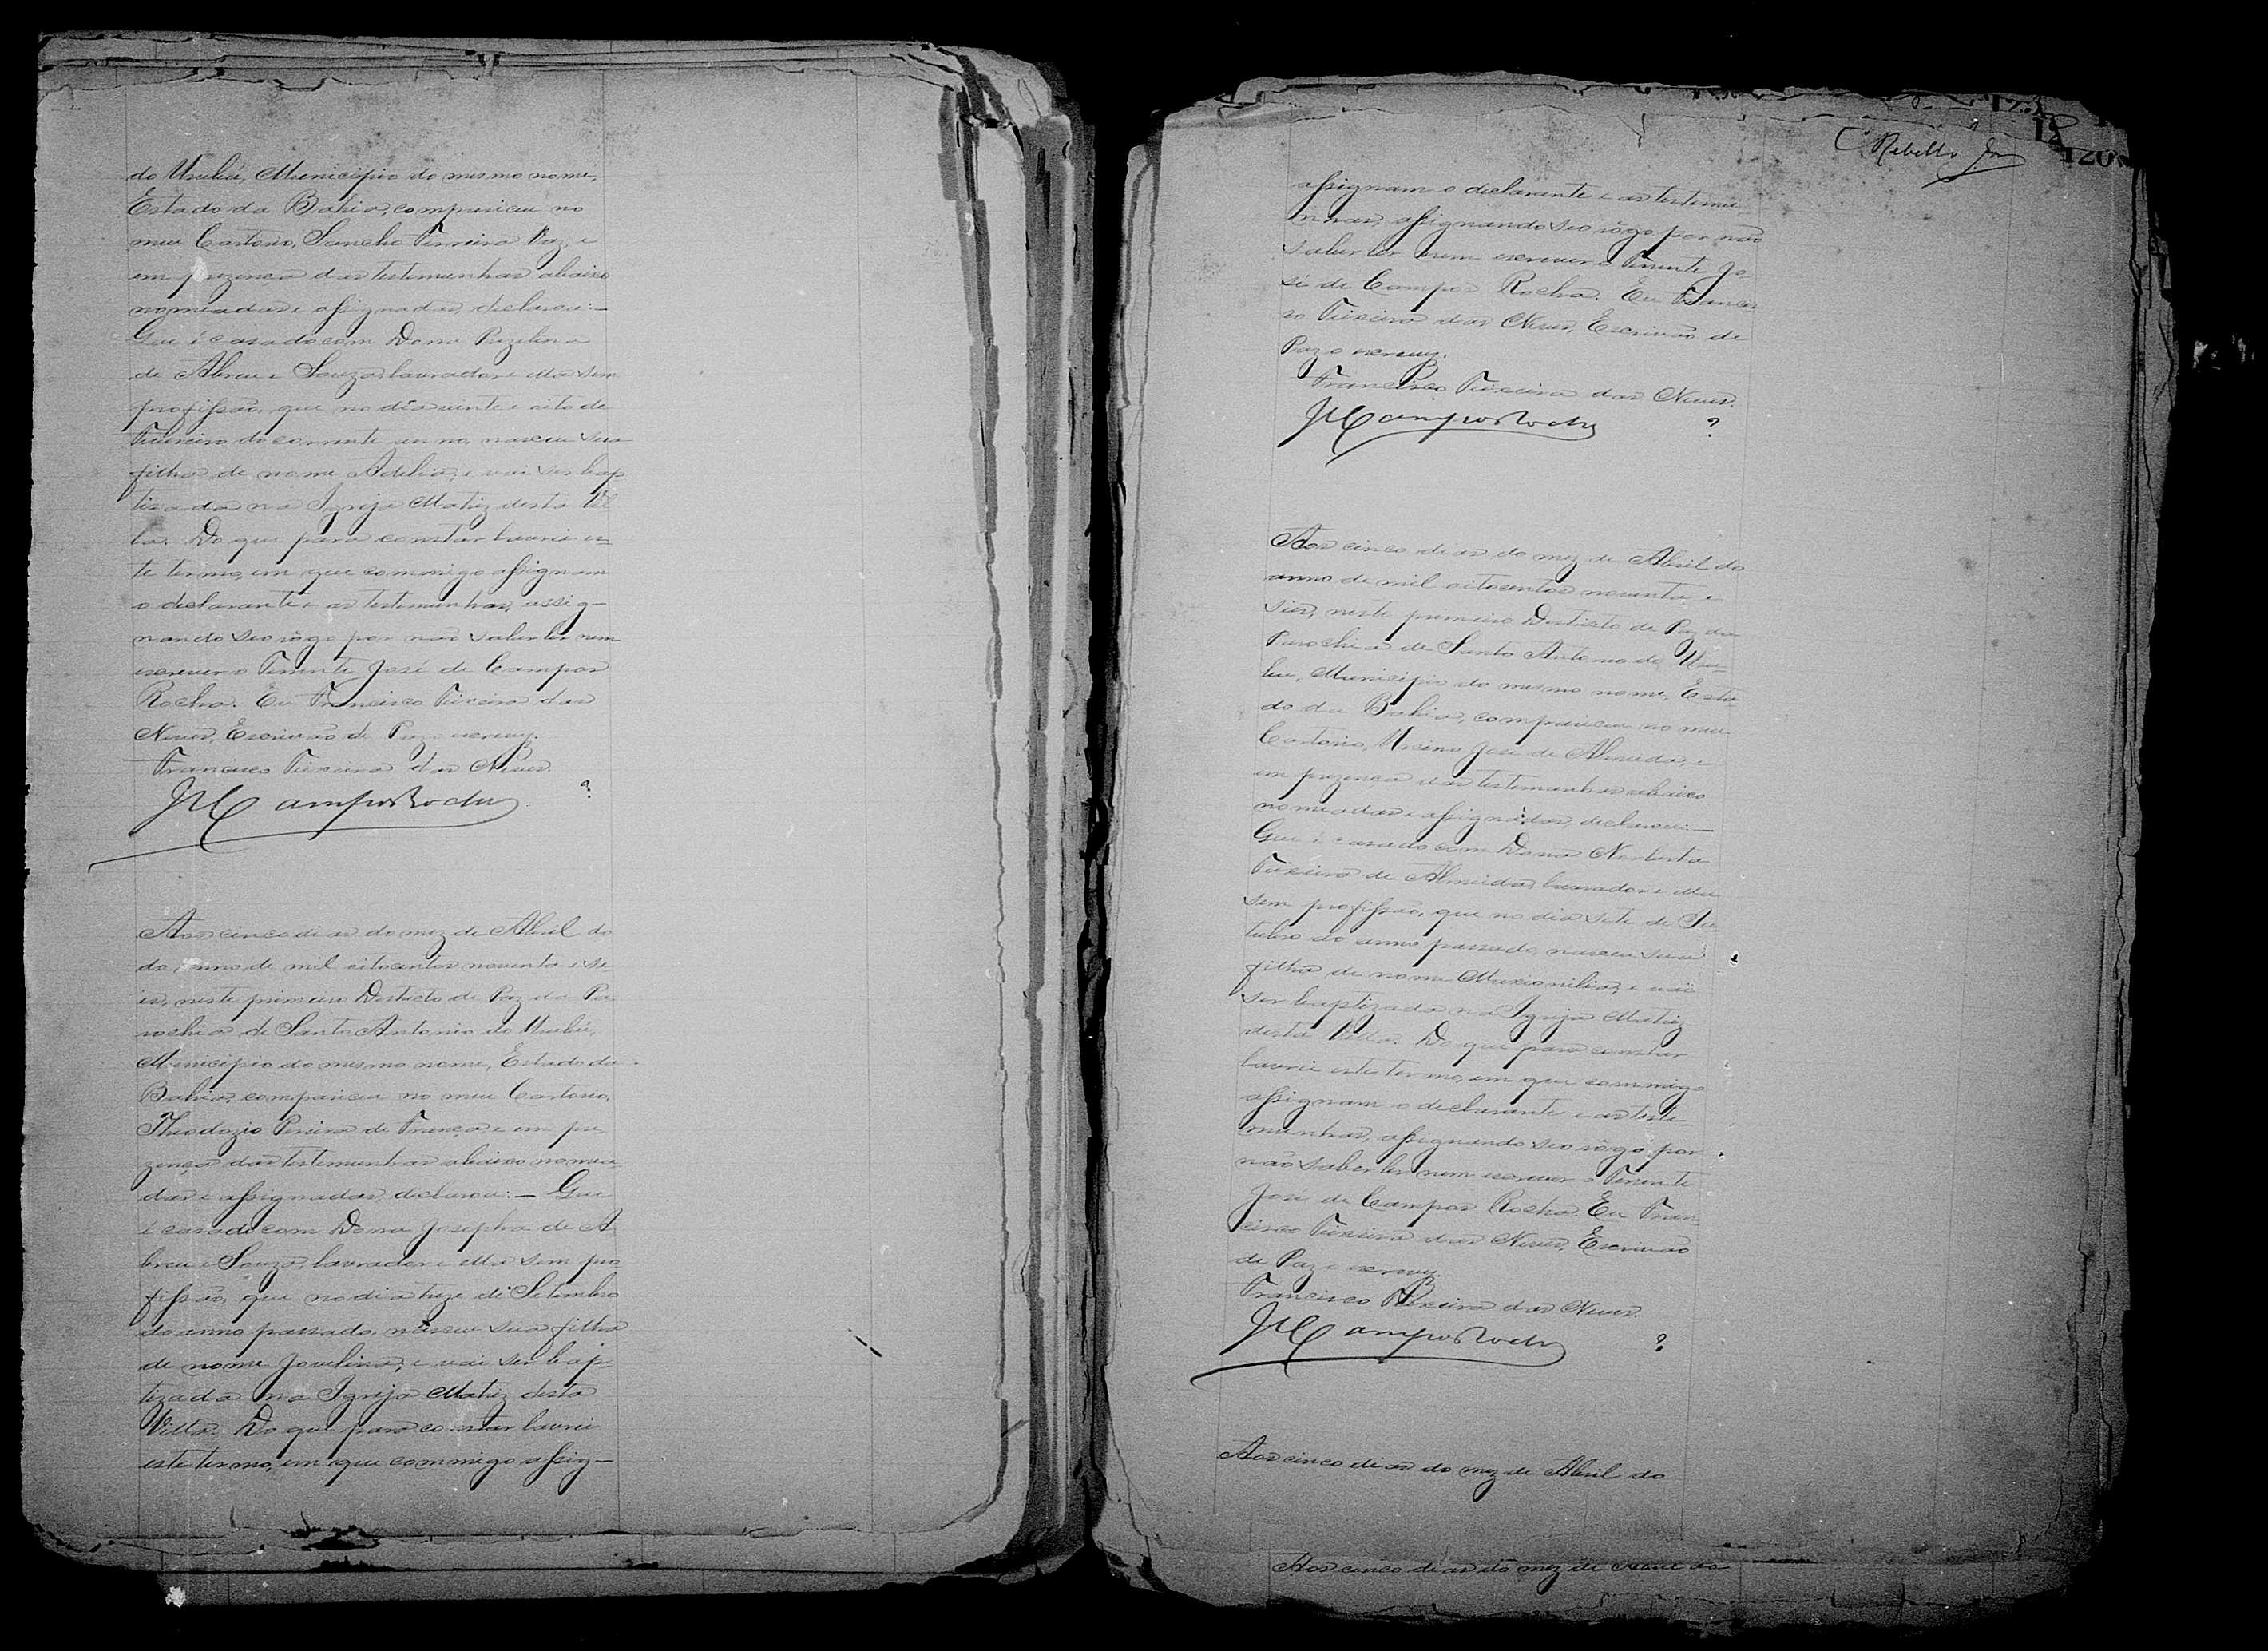 do Urubú, Municipio do mesmo nome,
Estado da Bahia, compareceu no
meu Cartorio, Sancho Ferreira Paz, e
em prezença das testemunhas abaixo
nomeadas e assignadas, declarou:—
Que é casado com Dona Puzelina
de Abreu e Souza, lavrador e ella sem
profissão, que no dia vinte e oito de
Fevereiro do corrente anno, nasceu sua
filha de nome Adelia, e vai ser bap
tisada na Igreja Matriz desta Vil
la. Do que para constar lavrei es=
te termo, em que commigo assignam
o declarante e as testemunhas, assig-
nando seo rôgo por não saber ler nem
escrever o Tenente José de Campos
Rocha. Eu Francisco Teixeira das
Neves, Escrivão de Paz o escrevy.
Francisco Teixeira das Neves.
JCamposRocha ?
Aos cinco dias do mez de Abril do
do anno de mil oitocentos noventa e se
is, neste primeiro Districto de Paz da Pa
rochia de Santo Antonio do Urubú,
Municipio do mesmo nome, Estado da
Bahia, compareceu no meu Cartorio,
Theodozio Pereira de França e em pre
zença das testemunhas abaixo nomea
das e assignadas, declarou:— Que
é casado com Dona Josepha de A
breu e Souza, lavrador e ella sem pro
fissão, que no dia treze de Setembro
do anno passado, nasceu sua filha
de nome Jovelina, e vai ser bap
tizada na Igreja Matriz desta
Villa. Do que para constar lavrei
este termo, em que commigo assig—
Rebello Jor
120
assignam o declarante e as testemu
nhas, assignando seo rôgo por não
saber ler nem escrever o Tenente Jo-
sé de Campos Rocha. Eu Francis
co Teixeira das Neves, Escrivão de
Paz o escrevy.
Francisco Teixeira das Neves.
JCamposRocha ?
Aos cinco dias do mez de Abril do
anno de mil oitocentos noventa e
seis, neste primeiro Districto de Paz da
Parochia de Santo Antonio do Uru-
bu, Municipio do mesmo nome, Esta
do da Bahia, compareceu no meu
Cartorio, Ursino José de Almeida, e
em prezença das testemunhas abaixo
nomeadas e assignadas, declarou:—
Que é casado com Dona Norberta
Teixeira de Almeida, lavrador e ella
sem profissão, que no dia sete de Ou
tubro do anno passado, nasceu sua
filha de nome e vai
ser baptizada na Igreja Matriz
desta Villa. Do que para constar
lavrei este termo, em que commigo
assignam o declarante e as teste
munhas, assignando seo rôgo por
não saber ler nem escrever o Tenente
José de Campos Rocha. Eu Fran-
cisco Teixeira das Neves, Escrivão
de Paz o escrevy.
Francisco Teixeira das Neves.
JCamposRocha ?
Aos cinco dias do mez de Abril do
Aos cinco dias do mez de Abril do